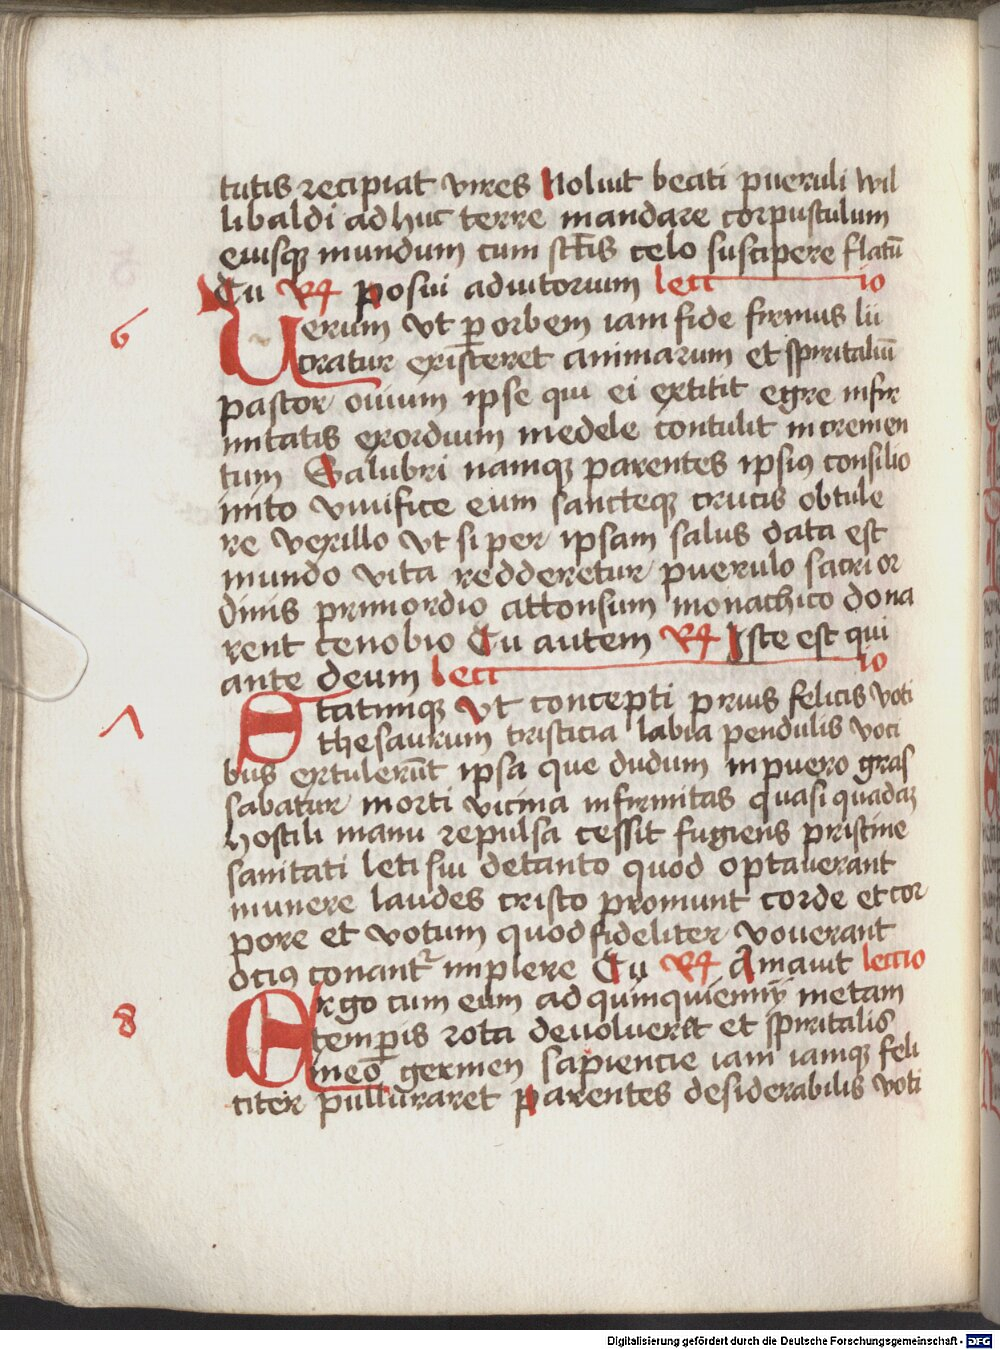 tutis recipiat vires Noluit beati pueruli wil
libaldi adhuc terre mandare corpusculum
eiusq mundum cum sctis celo suscipere flatū
Tu R Posui adiutorium lect io
6 Uerum vt p orbem iam fide firmus lu
cratur existeret animarum et spiritaliū
pastor ouium ipse qui ei extitit egre infir
mitatis exordium medele contulit incremen
tum Salubri namq parentes ipsius consilio
inito viuifice eum sancteq crucis obtule
re vexillo vt si per ipsam salus data est
mundo vita redderetur puerulo sacri or
dinis primordio attonsum monachico dona
rent cenobio Tu autem R Iste est qui
ante deum lect io
7 Statimq vt concepti prius felicis voti
thesaurum tristicia labia pendulis voci
bus extulerūt ipsa que dudum in puero gras
sabatur morti vicina infirmitas quasi quadaz
hostili manu repulsa cessit fugiens pristine
sanitati leti sui detanto quod optauerant
munere laudes cristo promunt corde et cor
pore et votum quod fideliter vouerant
ocius conant implere Tu R Amauit lectio
8 Ergo cum eum ad quinquiennij metam
temporis rota deuolueret et spiritalis
in eo germen sapiencie iam iamq feli
citer pulluraret parentes desiderabilis voti
Digitalisierung gefördert durch die Deutsche Forschungsgemeinschaft - DFG